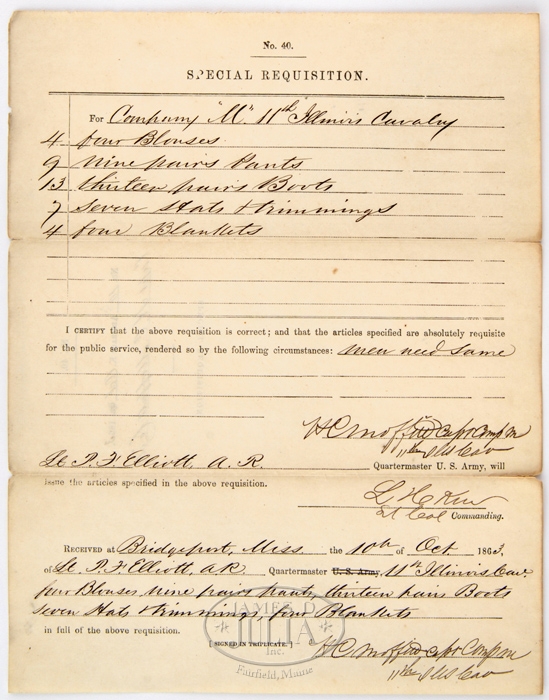 No. 40.
SPECIAL REQUISITION.
For Company "M" 11th Illinois Cavalry
4 four Blouses
9 nine pairs Pants
13 thirteen pairs Boots
7 seven Hats & trimmings
4 four Blankets
I CERTIFY that the above requisition is correct; and that the articles specified are absolutely requisite
for the public service, rendered so by the following circumstances: men need same
H C Moffitt Capt Comp M
11th Ills Cav
Lt P. F. Elliott, A. R. Quartermaster U. S. Army, will
issue the articles specified in the above requisition.
L H Kerr
Lt Col Commanding.
RECEIVED at Bridgeport, Miss. the 10th of Oct. 1863,
of Lt P. F. Elliott, A R Quartermaster U. S. Army, 11th Illinois, Cav.
four Blouses, nine pairs pants, thirteen pairs Boots
seven Hats & trimmings, four Blankets
in full of the above requisition.
[SIGNED IN TRIPLICATE.] H C Moffitt Capt Comp M
11th Ills Cav
JAMES D. JULIA Inc.
Fairfield, Maine